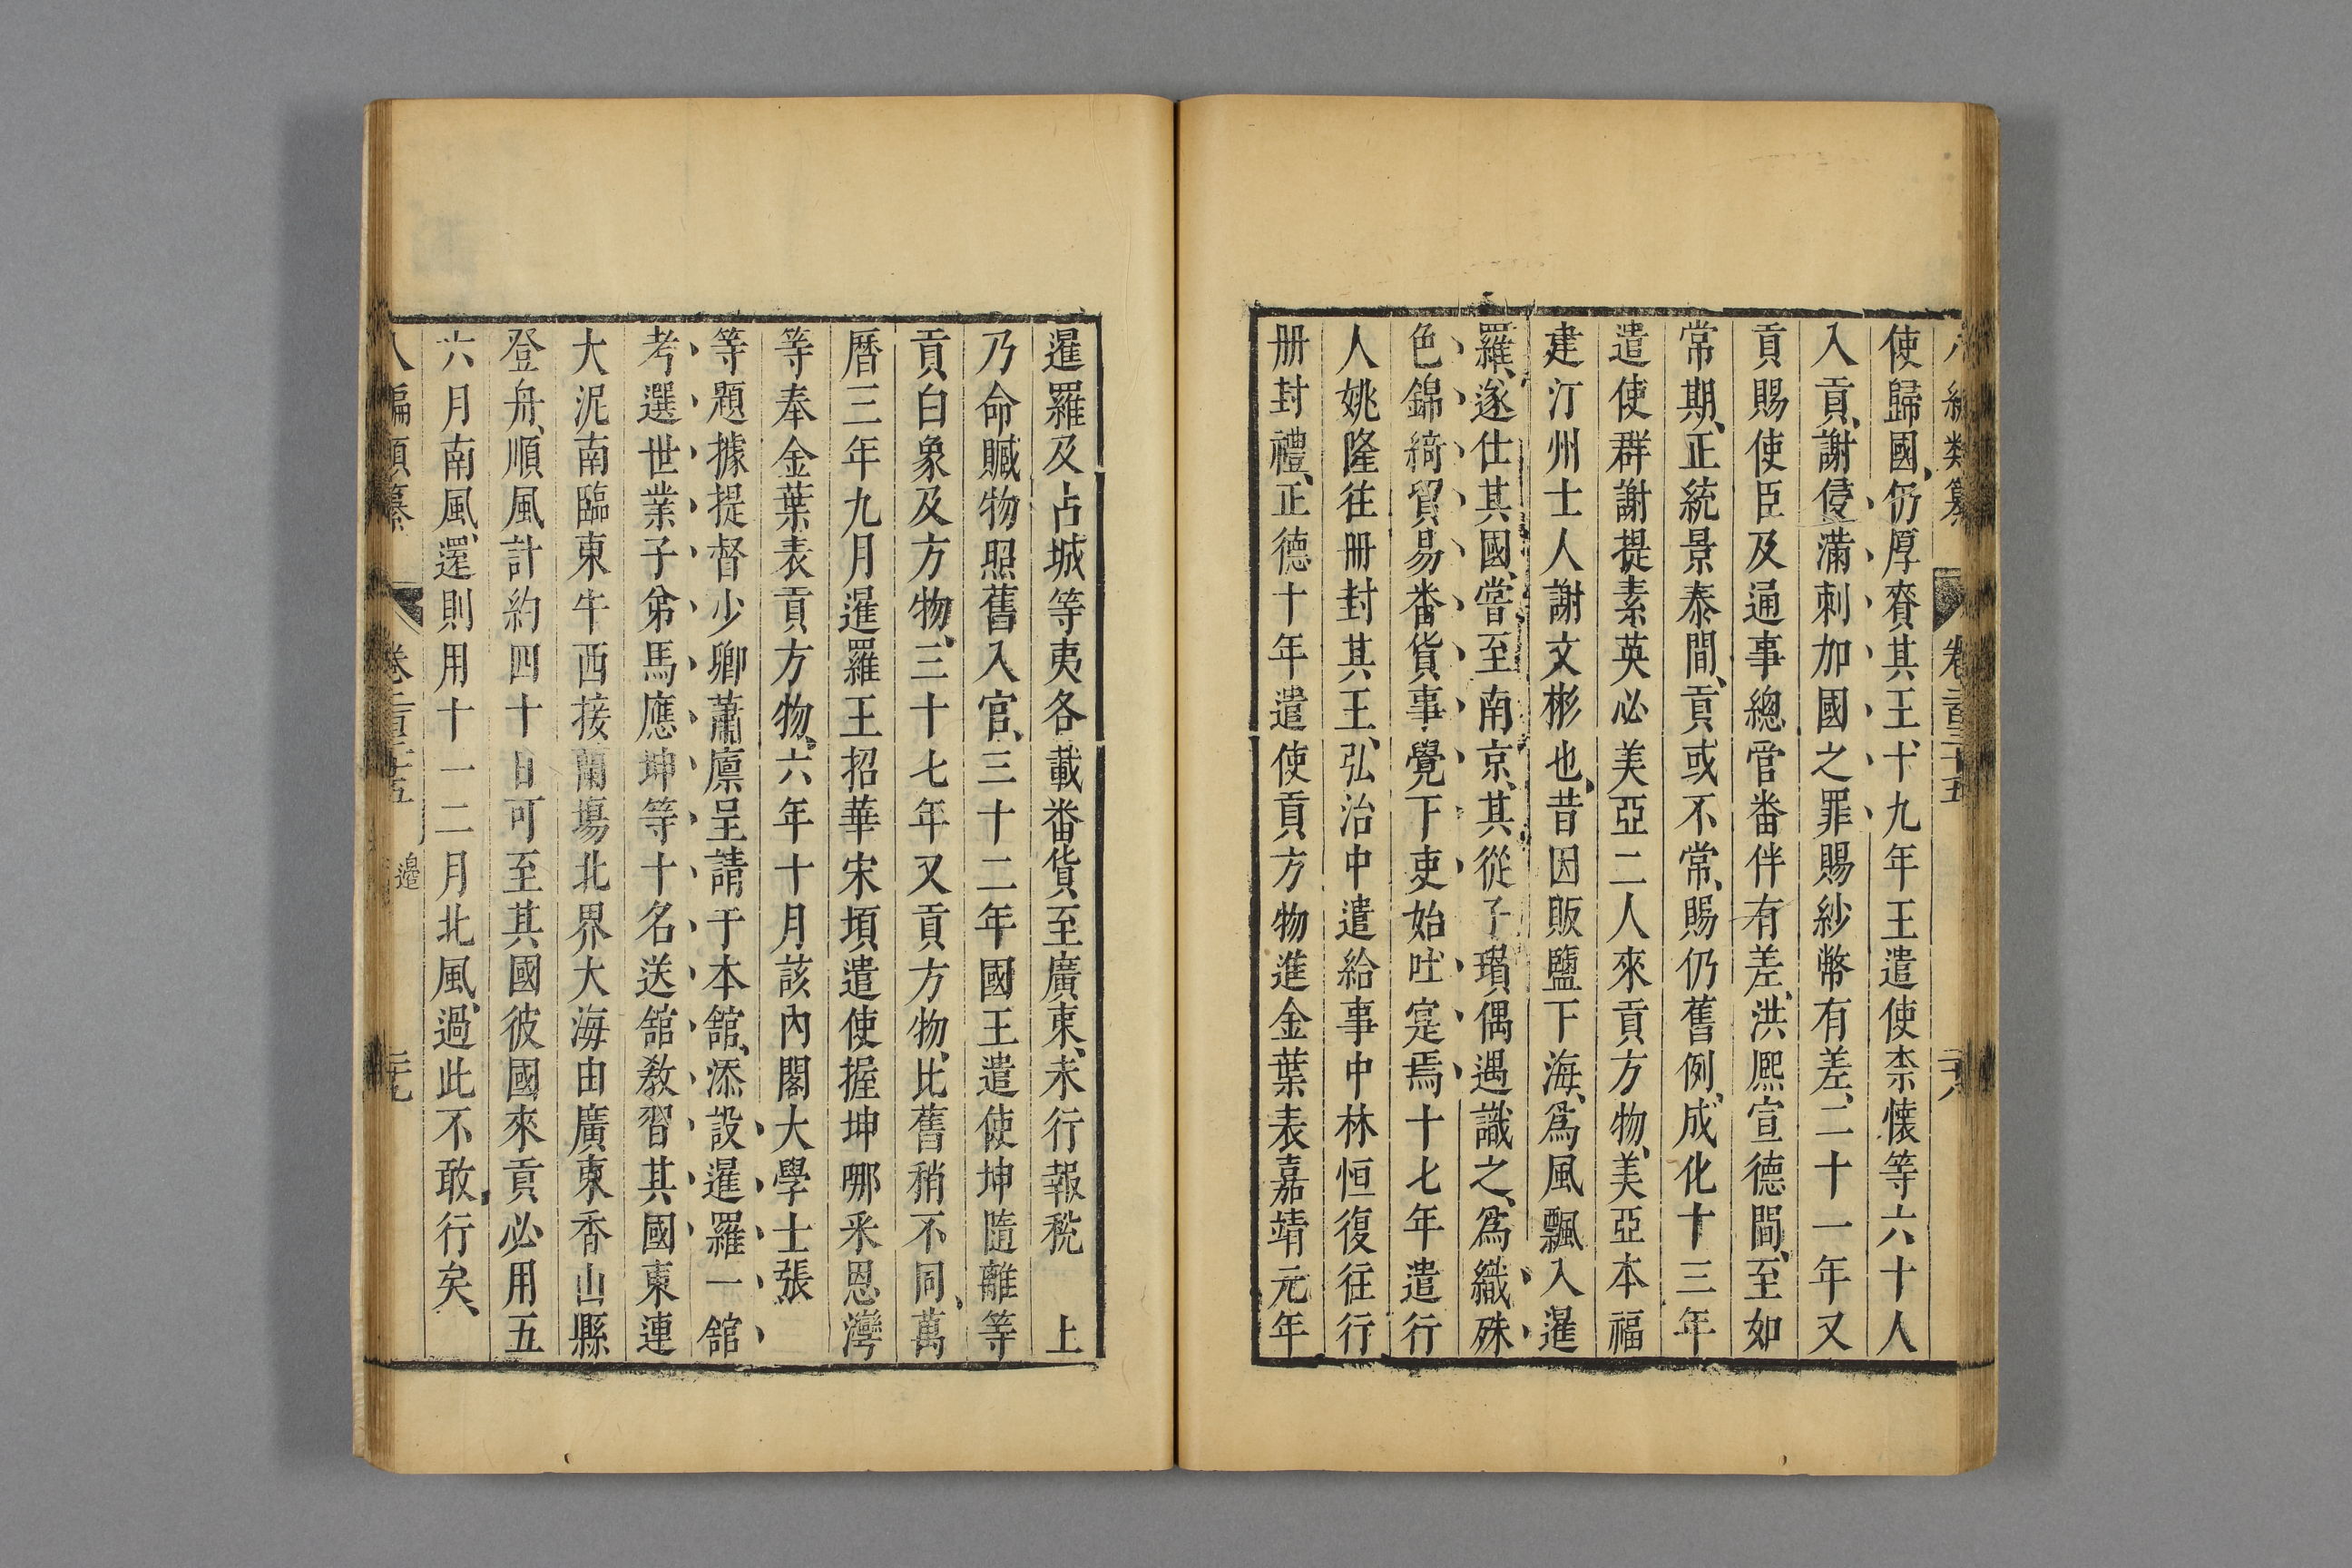 八編類纂 卷二百三十五 二十八
使歸國、仍厚賚其王、十九年王遣使柰懷等六十人
入貢、謝侵滿剌加國之罪賜紗幣有差、二十一年又
貢賜使臣及通事總管番伴有差、洪熙宣德間、至如
常期、正統景泰間、貢或不常、賜仍舊例、成化十三年
遣使群謝提素英必美亞二人來貢方物、美亞本福
建汀州士人謝文彬也、昔因販鹽下海、爲風飄入暹
羅、遂仕其國、嘗至南京、其從子瓚偶遇識之、爲織殊
色錦綺貿易番貨事覺下吏始吐寔焉十七年遣行
人姚隆往册封其王、弘治中遣給事中林恒復往行
册封禮、正德十年遣使貢方物進金葉表嘉靖元年
暹羅及占城等夷各載番貨至廣東、未行報稅　上
乃命贓物照舊入官、三十二年國王遣使坤隨離等
貢白象及方物、三十七年又貢方物、比舊稍不同、萬
曆三年九月暹羅王招華宋頃遣使握坤哪釆恩灣
等奉金葉表貢方物、六年十月該內閣大學士張
等題據提督少卿蕭廩呈請于本舘、添設暹羅一舘
考選世業子弟馬應坤等十名送舘教習其國東連
大泥南臨東牛西接蘭塲北界大海由廣東香山縣
登舟、順風計約四十日可至其國彼國來貢必用五
六月南風、還則用十一二月北風、過此不敢行矣、
八編類纂 卷二百三十五 邊 二十九